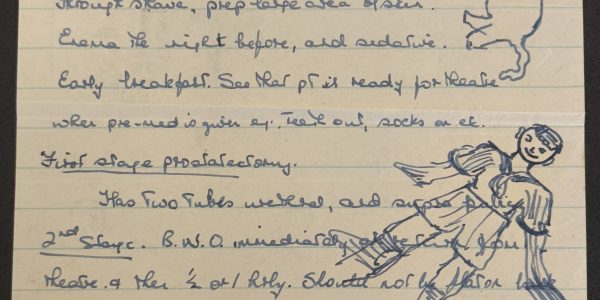 through shave, prep large area of skin.
Enema the night before, and sedative.
Early breakfast. See that pt is ready for theatre
when pre-med is given eg. Teeth out, socks on etc.
First stage prostatectomy.
Has Two Tubes urethral, and supra pubic
2nd Stage. B.W.O. immediately return from
theatre. & then ½ or 1 hrly. Should not be flat on back